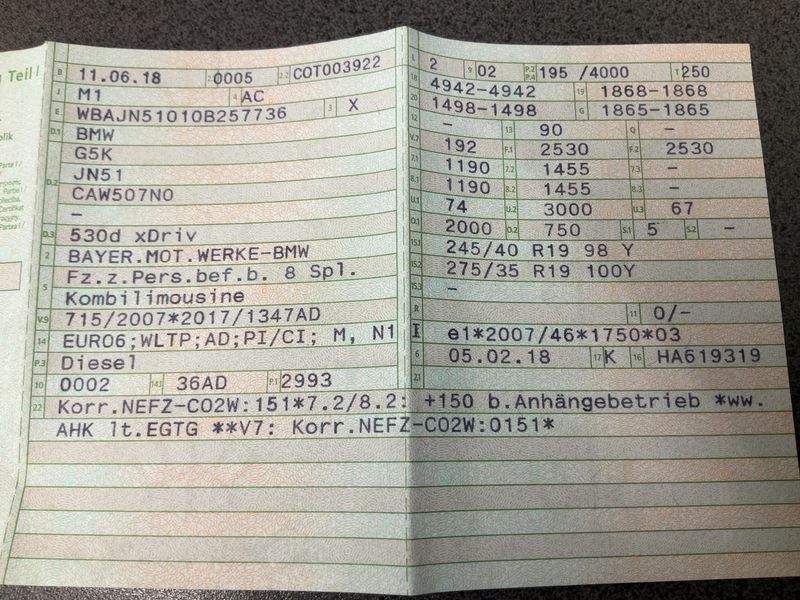 Teil I
B 11.06.18 2.1 0005 2.2 COT003922
J M1 4 AC
E WBAJN51010B257736 3 X
D.1 BMW
G5K
JN51
D.2 CAW507N0
–
D.3 530d xDriv
2 BAYER.MOT.WERKE-BMW
Fz.z.Pers.bef.b. 8 Spl.
5 Kombilimousine
V.9 715/2007*2017/1347AD
14 EURO6;WLTP;AD;PI/CI; M, N1
P.3 Diesel
10 0002 14.1 36AD P.1 2993
L 2 9 02 P.2 P.4 195 /4000 T 250
18 4942-4942 19 1868-1868
20 1498-1498 G 1865-1865
12 – 13 90 Q –
V.7 192 F.1 2530 F.2 2530
7.1 1190 7.2 1455 7.3 –
8.1 1190 8.2 1455 8.3 –
U.1 74 U.2 3000 U.3 67
O.1 2000 O.2 750 S.1 5 S.2 –
15.1 245/40 R19 98 Y
15.2 275/35 R19 100Y
15.3 –
R 11 0/-
K e1*2007/46*1750*03
6 05.02.18 17 K 16 HA619319
21
22 Korr.NEFZ-CO2W:151*7.2/8.2: +150 b.Anhängebetrieb *ww.
AHK lt.EGTG **V7: Korr.NEFZ-CO2W:0151*